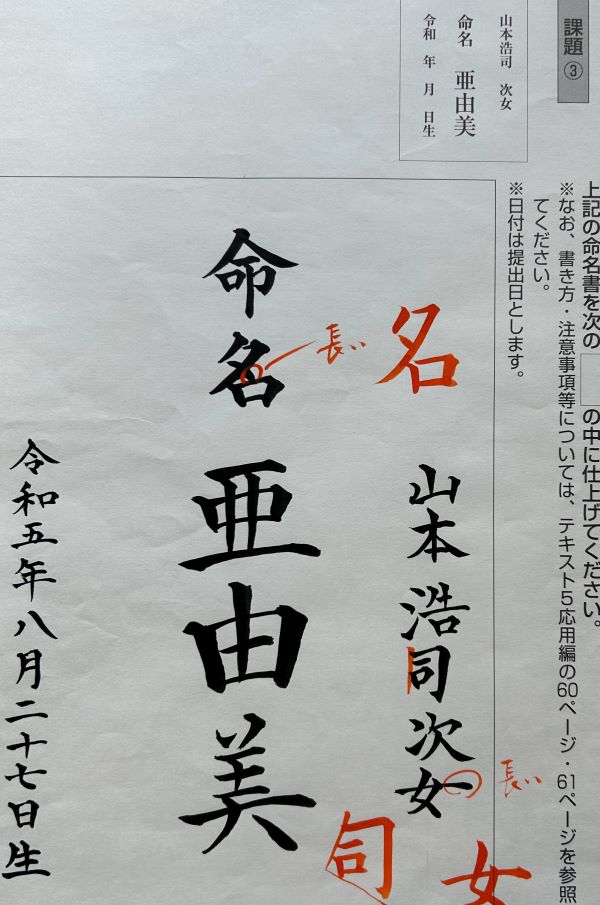 課題③
山本浩司 次女
命名 亜由美
令和 年 月 日生
上記の命名書を次の の中に仕上げてください。
※なお、書き方・注意事項等については、テキスト5応用編の60ページ・61ページを参照
てください。
※日付は提出日とします。
山本浩司次女
命名 亜由美
令和五年八月二十七日生
名
長い
長い
司
女